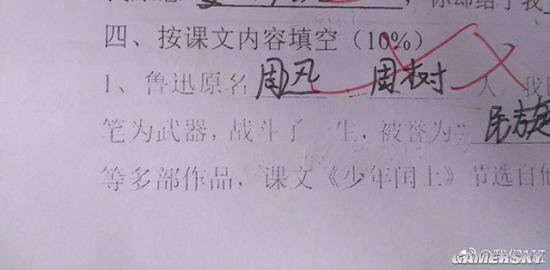 你却给了我
四、按课文内容填空（10%）
1、鲁迅原名 周 周树 人 我
笔为武器，战斗了一生，被誉为“民族
等多部作品，课文《少年闰土》节选自他
GAMERSKY